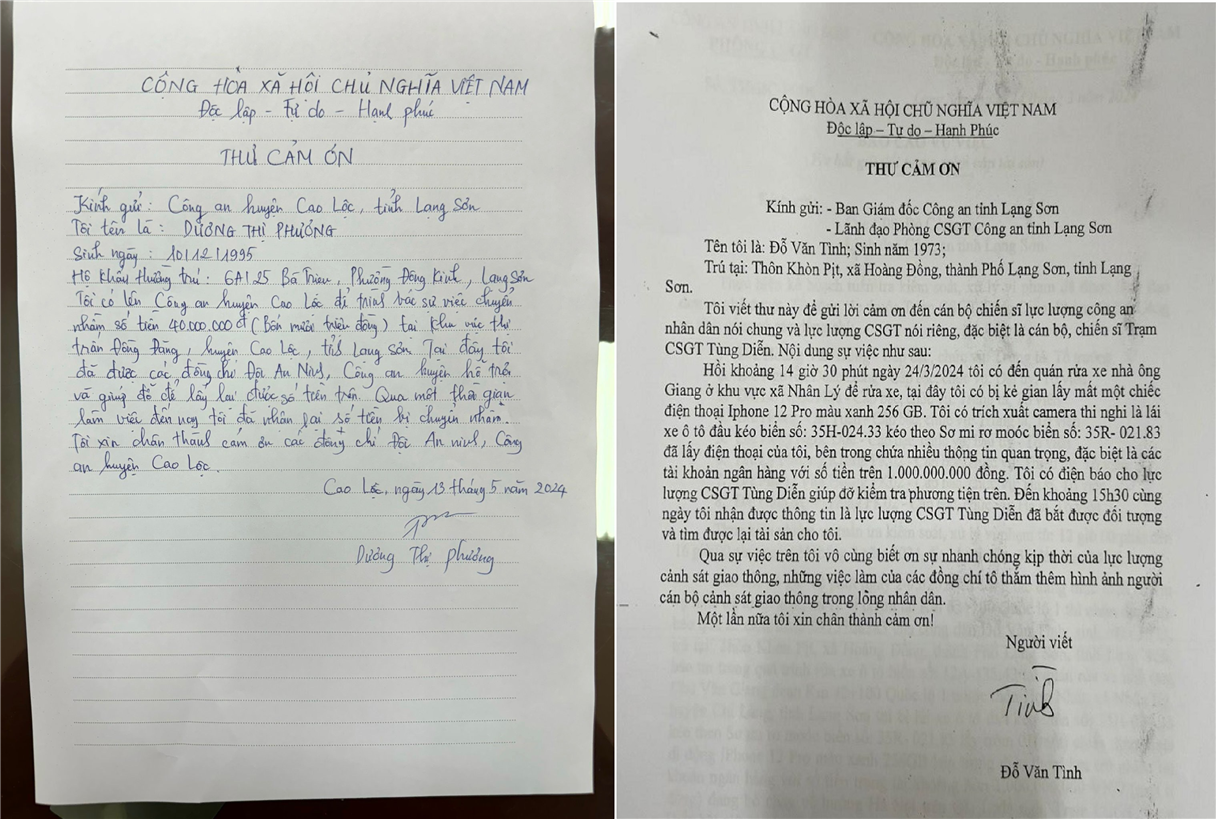 CỘNG HÒA XÃ HỘI CHỦ NGHĨA VIỆT NAM
Độc lập - Tự do - Hạnh phúc
THƯ CẢM ƠN
Kính gửi : Công an huyện Cao Lộc, tỉnh Lạng Sơn
Tôi tên là : DƯƠNG THỊ PHƯƠNG
Sinh ngày : 10/12/1995
Hộ khẩu thường trú : 6A/25 Bà Triệu, Phường Đông Kinh, Lạng Sơn
Tôi có lên Công an huyện Cao Lộc để trình báo sự việc chuyển
nhầm số tiền 40.000.000đ (Bốn mươi triệu đồng) tại khu vực thị
trấn Đồng Đăng, huyện Cao Lộc, tỉnh Lạng Sơn. Tại đây tôi
đã được các đồng chí Đội An Ninh, Công an huyện hỗ trợ
và giúp đỡ để lấy lại được số tiền trên. Qua một thời gian
làm việc đến nay tôi đã nhận lại số tiền bị chuyển nhầm.
Tôi xin chân thành cảm ơn các đồng chí Đội An ninh, Công
an huyện Cao Lộc.
Cao Lộc, ngày 13 tháng 5 năm 2024
Dương Thị Phương
CỘNG HÒA XÃ HỘI CHŨ NGHĨA VIỆT NAM
Độc lập – Tự do – Hạnh Phúc
THƯ CẢM ƠN
Kính gửi: - Ban Giám đốc Công an tỉnh Lạng Sơn
- Lãnh đạo Phòng CSGT Công an tỉnh Lạng Sơn
Tên tôi là: Đỗ Văn Tình; Sinh năm 1973;
Trú tại: Thôn Khòn Pịt, xã Hoàng Đồng, thành Phố Lạng Sơn, tỉnh Lạng
Sơn.
Tôi viết thư này để gửi lời cảm ơn đến cán bộ chiến sĩ lực lượng công an
nhân dân nói chung và lực lượng CSGT nói riêng, đặc biệt là cán bộ, chiến sĩ Trạm
CSGT Tùng Diễn. Nội dung sự việc như sau:
Hồi khoảng 14 giờ 30 phút ngày 24/3/2024 tôi có đến quán rửa xe nhà ông
Giang ở khu vực xã Nhân Lý để rửa xe, tại đây tôi có bị kẻ gian lấy mất một chiếc
điện thoại Iphone 12 Pro màu xanh 256 GB. Tôi có trích xuất camera thì nghi là lái
xe ô tô đầu kéo biển số: 35H-024.33 kéo theo Sơ mi rơ moóc biển số: 35R- 021.83
đã lấy điện thoại của tôi, bên trong chứa nhiều thông tin quan trọng, đặc biệt là các
tài khoản ngân hàng với số tiền trên 1.000.000.000 đồng. Tôi có điện báo cho lực
lượng CSGT Tùng Diễn giúp đỡ kiểm tra phương tiện trên. Đến khoảng 15h30 cùng
ngày tôi nhận được thông tin là lực lượng CSGT Tùng Diễn đã bắt được đối tượng
và tìm được lại tài sản cho tôi.
Qua sự việc trên tôi vô cùng biết ơn sự nhanh chóng kịp thời của lực lượng
cảnh sát giao thông, những việc làm của các đồng chí tô thắm thêm hình ảnh người
cán bộ cảnh sát giao thông trong lồng nhân dân.
Một lần nữa tôi xin chân thành cảm ơn!
Người viết
Tình
Đỗ Văn Tình